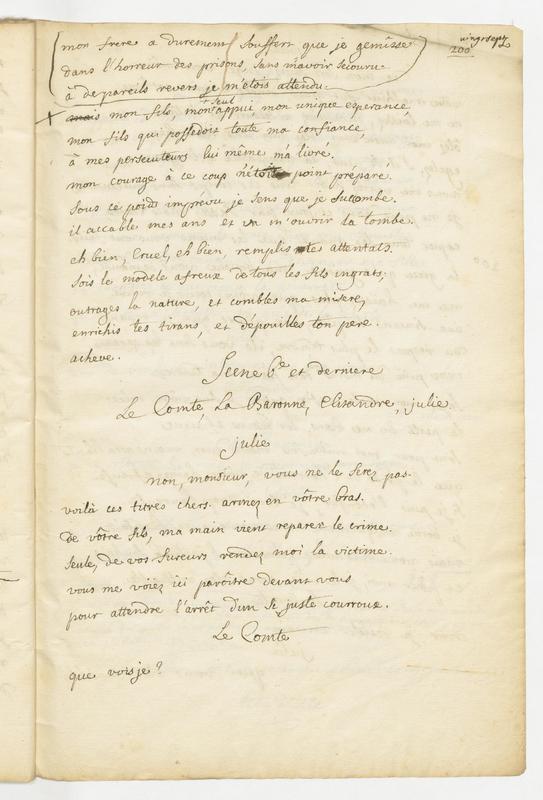 vingtsept
200
mon frere a durement souffert que je gemisse
dans l'horreur des prisons, sans m'avoir secouru.
à de pareils revers je m'étois attendu.
mais mon fils, mon seul appui, mon unique esperance,
mon fils qui possedoit toute ma confiance,
à mes persecuteurs lui même m'a livré.
mon courage à ce coup n'étoit point préparé.
sous ce poids imprévu je sens que je succombe.
il accable mes ans et va m'ouvrir la tombe.
eh bien, cruel, eh bien, remplis tes attentats.
sois le modele afreux de tous les fils ingrats;
outrages la nature, et combles ma misere,
enrichis tes tirans, et dépouilles ton pere.
acheve.
Scene 6e et derniere
Le Comte, La Baronne, Elisandre, julie.
julie
non, monsieur, vous ne le serez pas.
voilà ces titres chers. armez en vôtre bras.
de vôtre fils, ma main vient reparer le crime.
seule, de vos fureurs rendez moi la victime.
vous me voiez ici paroître devant vous
pour attendre l'arrêt d'un si juste courroux.
Le Comte
que vois je?